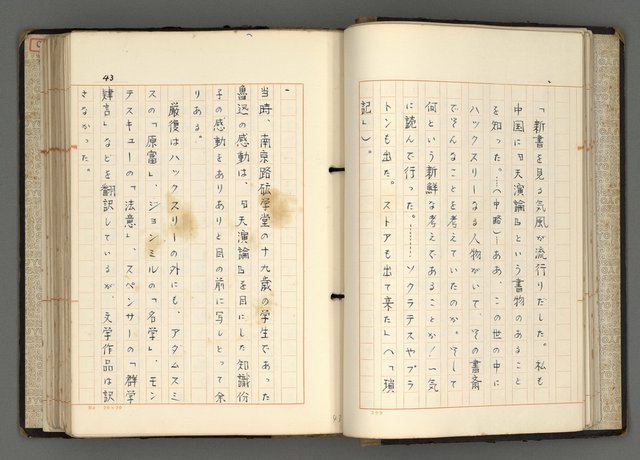 「新書を見る気風が流行りだした。私も
中国に『天演論』という書物のあること
を知った。…(中略)―ああ、この世の中に
ハックスリーなる人物がいて、その書斎
でそんなことを考えていたのか。そして
何という新鮮な考えであることか!一気
に読んで行った。………ソクラテスやプラ
トンも出た。ストアも出て来た」(「瑣
記」)。
当時、南京路砿学堂の十九歳の学生であった
魯迅の感動は、『天演論』を目にした知識份
子の感動をありありと目の前に写しとって余
りある。
厳復はハックスリーの外にも、アダムスミ
スの「原富」、ジョンミルの「名学」、モン
テスキューの「法意」、スペンサーの「群学
肄言」などを翻訳しているが、文学作品は訳
さなかった。
43